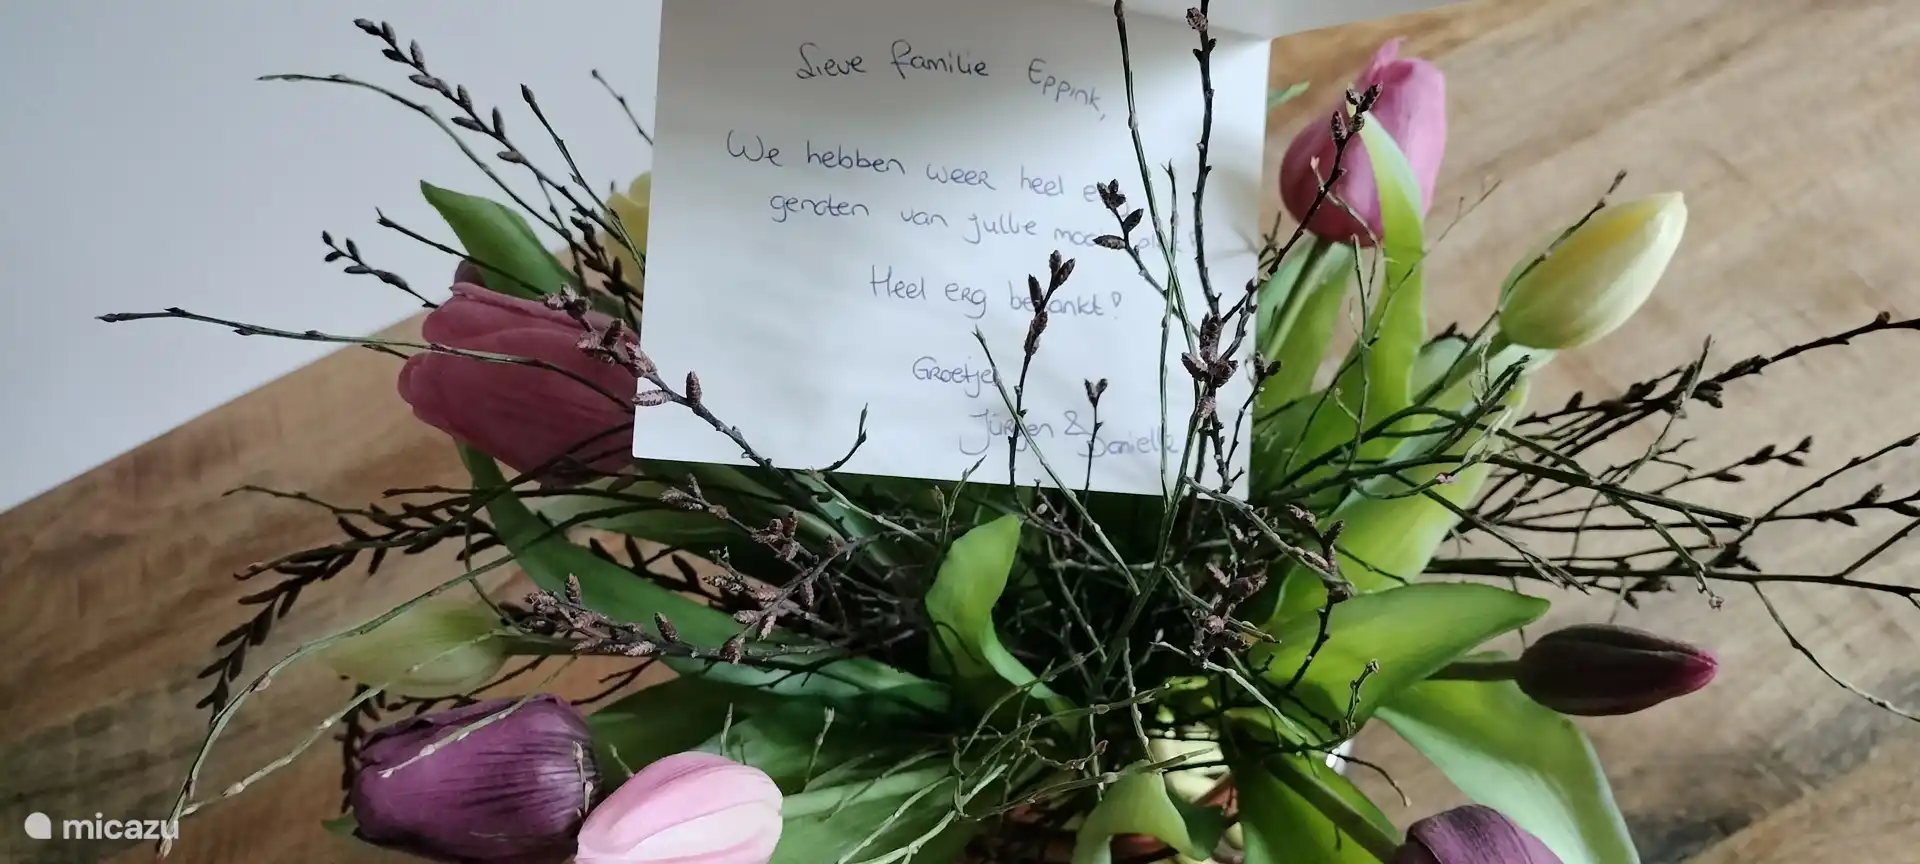 Lieve familie Eppink,
We hebben weer heel
genoten van jullie
Heel erg bedankt!
Groetjes
Jürgen & Danielle
micazu